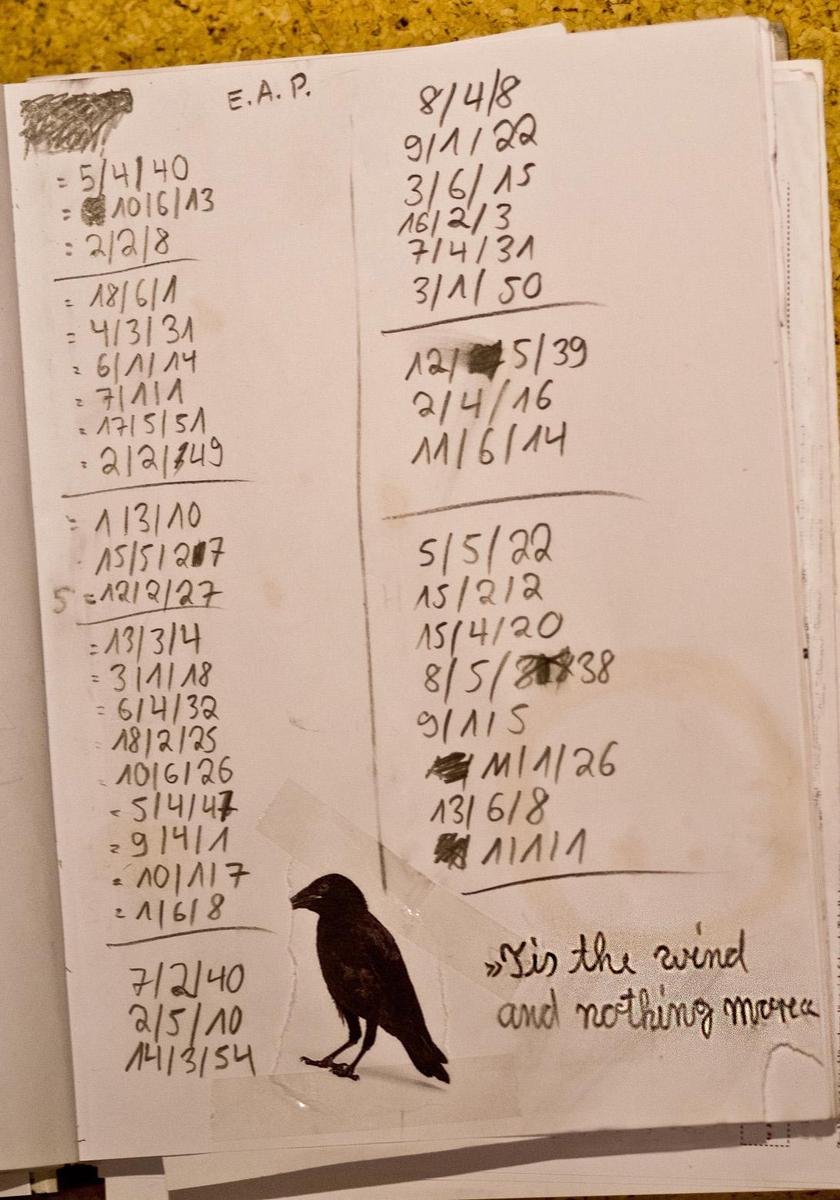 E.A.P.
= 5/4/40
= 10/6/13
= 2/2/8
= 18/6/1
= 4/3/31
= 6/1/14
= 7/1/1
= 17/5/51
= 2/2/49
= 1/3/10
15/5/27
= 12/2/27
= 13/3/4
= 3/1/18
= 6/4/32
18/2/25
10/6/26
= 5/4/47
= 9/4/1
= 10/1/7
= 1/6/8
7/2/40
2/5/10
14/3/54
8/4/8
9/1/22
3/6/15
16/2/3
7/4/31
3/1/50
12/5/39
2/4/16
11/6/14
5/5/22
15/2/2
15/4/20
8/5/38
9/1/5
11/1/26
13/6/8
1/1/1
»Tis the wind
and nothing more«